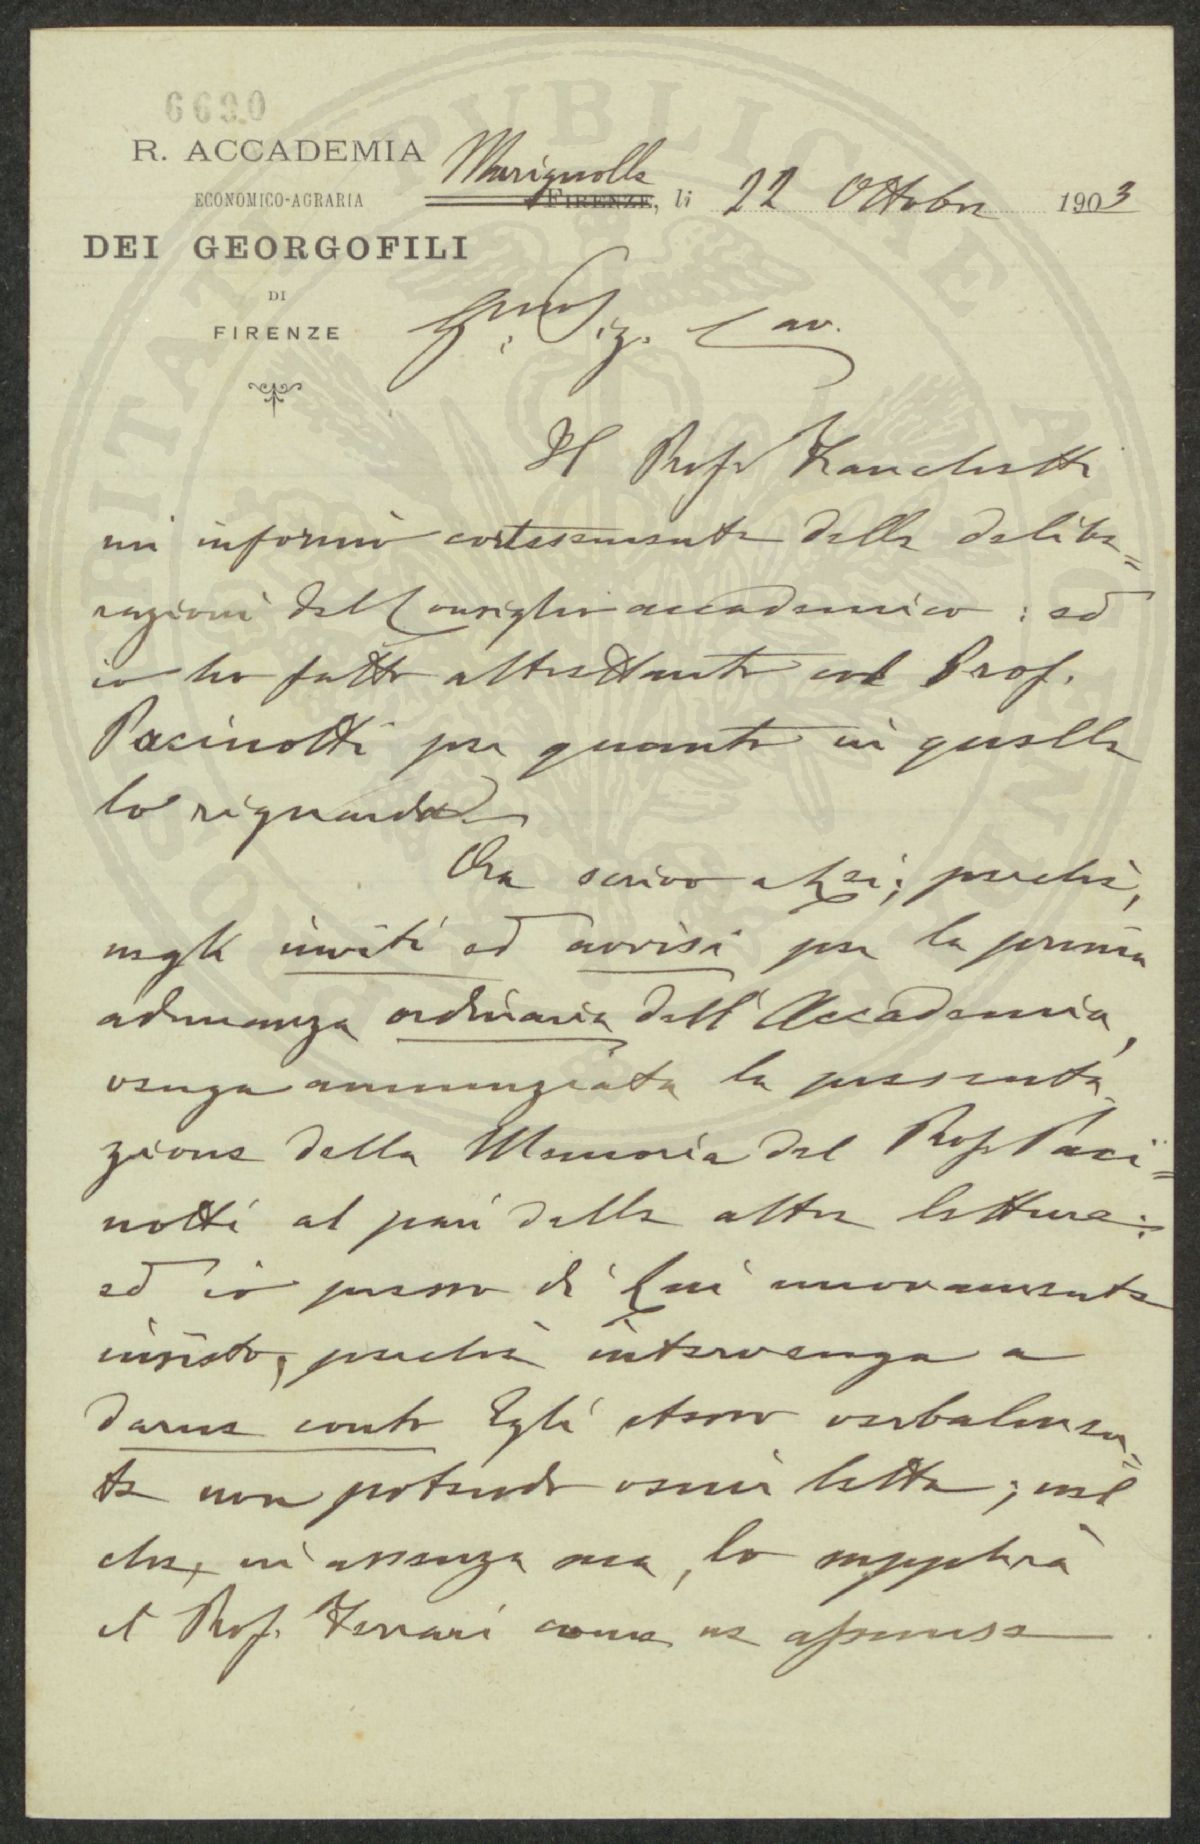 6690
R. ACCADEMIA
ECONOMICO-AGRARIA
DEI GEORGOFILI
DI
FIRENZE
Marignolle
FIRENZE, li 22 Ottobre 1903
Sig. Cav.
Il Prof. Franchetti
mi informò cortesemente delle delibe=
razioni del Consiglio accademico: ed
io ho fatto altrettanto col Prof.
Pacinotti per quanto in quelle
lo riguarda.
Ora scrivo a Lei; perché,
negli inviti ed avvisi per la prima
adunanza ordinaria dell'Accademia,
venga annunziata la presenta
zione della Memoria del Prof. Paci=
notti al pari delle altre letture:
ed io presso di Lui nuovamente
insisto, perchè intervenga a
darne conto Egli stesso verbalmen
te non potendo venir letta; nel
che, in assenza sua, lo supplirà
il Prof. Ferrari come ne espresse